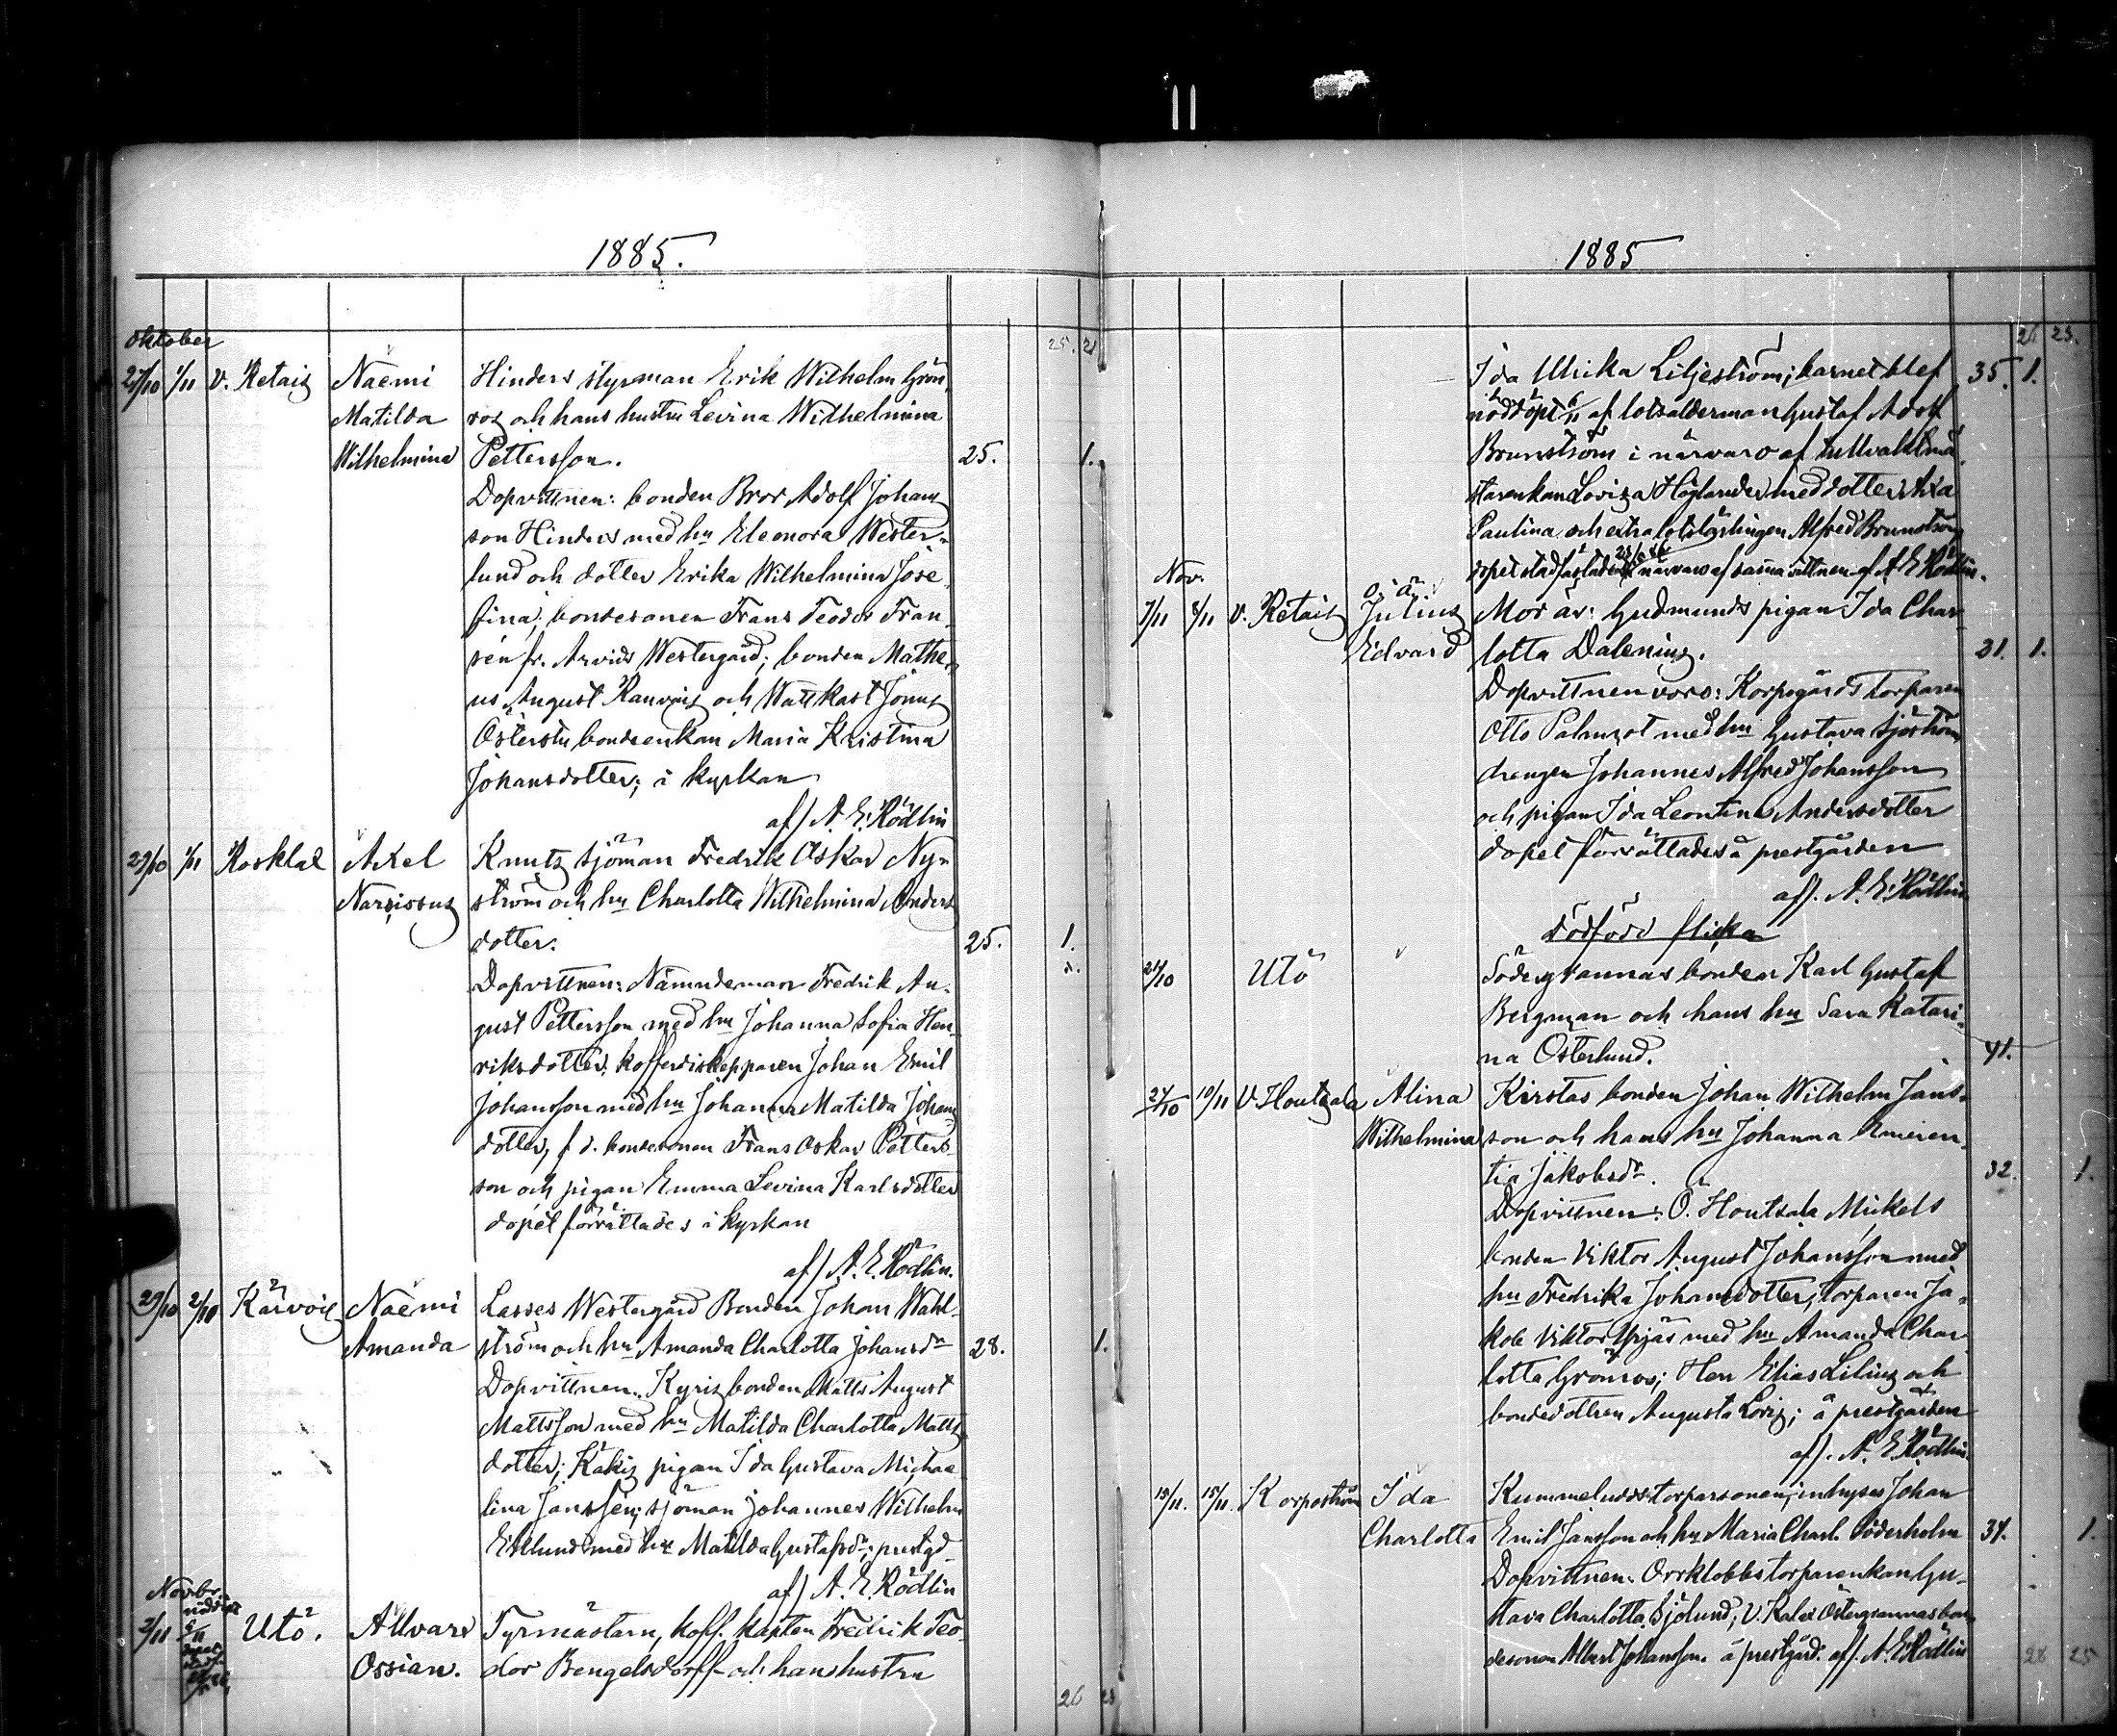 1885.
oktober
25. 21
27/10 1/11 V. Retais Naemi Hinders styrman Erik Wilhelm Grön
Matilda ros och hans hustru Levina Wilhelmina
Wilhelmina Pettersson. 25. 1.
Dopvittnen: bonden Bror Adolf Johans
son Hinders med hu Eleonora Wester-
lund och dotter Erika Wilhelmina Jose
fina; bondesonen Frans Teodor Fran
sén fr. Arvids Westergård; bonden Mathe
us August och Jonus
Österstu bondeenkan Maria Kristina
Johansdotter; i kyrkan
af/ A. E. Rödlin
29/10 1/11 Rosklal Axel Knuts sjöman Fredrik Oskar Ny-
Narsissus ström och hu Charlotta Wilhelmina Anders
dotter. 25. 1.
Dopvittnen: Nämndeman Fredrik Au-
gust Pettersson med hu Johanna Sofia Hen
riksdotter; kofferdiskepparen Johan Emil
Johansson med hu Johanna Matilda Johans
dotter, f. d. bondesonen Frans Oskar Petters-
son och pigan Emma Levina Karlsdotter
dopet förrättades i kyrkan
af/ A. E. Rödlin.
29/10 2/10 Kärvois Naemi Lasses Westergård Bonden Johan Wahl-
Amanda ström och hu Amanda Charlotta Johansdr 28. 1.
Dopvittnen: Kyris bonden Matts August
Mattsson med hu Matilda Charlotta Matts
dotter; Käkis pigan Ida Gustava Michae
lina Janssén; sjöman Johannes Wilhelm
Eklund med hu Matilda Gustafsdr; prestgd
af/ A. E. Rödlin
Novbr.
2/11 Utö. Allvar Fyrmästarn, koff. kapten Fredrik Teo-
Ossian. dor Bengelsdorff och hans hustru
26 23
1885
26 23.
Ida Ulrika Liljeström; barnet blef 35. 1.
nöddöpt 6/11 af lotsålderman Gustaf Adolf
Brunström i närvaro af tullvaktmä
starenkan Lovisa Höglander med dotter
Paulina och extra lotslärlingen Alfred Brunström
dopet stadfästades i närvaro af samma vittnen af A E Rödlin.
Nov.
7/11 8/11 V. Retais o. ä. Julius Mor är: Gudmunds pigan Ida Char
Edvard lotta Dalenius. 21. 1.
Dopvittnen voro: Korpogårds torparen
Otto Palmrot med hu Gustava Sjöström
drengen Johannes Alfred Johansson
och pigan Ida Leontina Andersdotter
dopet förrättades å prestgården
af/. A. E. Rödlin
Dödfödd flicka
24/10 Utö Södergrannas bonden Karl Gustaf
Bergman och hans hu Sara Katari
na Österlund. 41.
27/10 10/11 V. Houtsala Alina Kirstas bonden Johan Wilhelm Jans-
Wilhelmina son och hans hu Johanna
tia Jakobsdr. 32. 1.
Dopvittnen: Ö. Houtsala Mickels
bonden Viktor August Johansson med
hu Fredrika Johansdotter, torparen Ja-
kob Viktor med hu Amanda Char
lotta Grönros; Hen Elias Lilius och
bondedottren Augusta Lovis; å prestgården
af/. A. E. Rödlin
13/11. 15/11. Korpoström Ida Kummelnäs torparsonen, inhyses Johan
Charlotta Emil Jansson och hu Maria Charl. Söderholm 34. 1.
Dopvittnen: Orrklobbs torparenkan Gu-
stava Charlotta Sjölund; Östergrannas bon
desonen Albert Johansson. å prestgård. af/. A. E. Rödlin
28 25